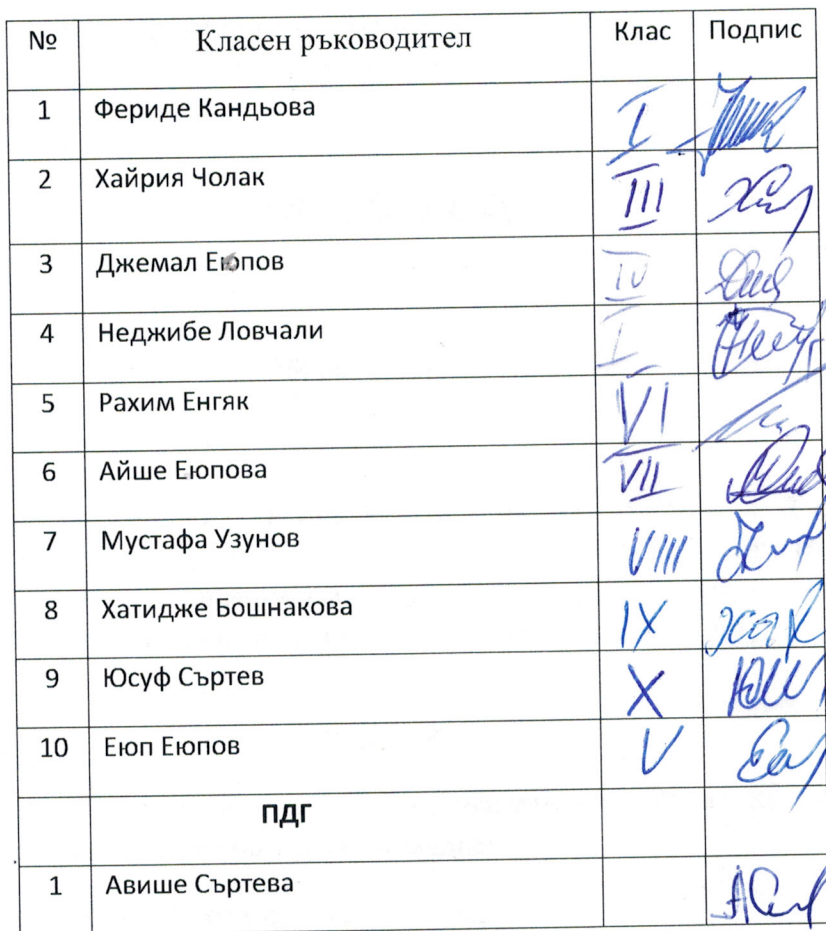 № Класен ръководител Клас Подпис
1 Фериде Кандьова I
2 Хайрия Чолак III
3 Джемал Еюпов IV
4 Неджибе Ловчали I
5 Рахим Енгяк VI
6 Айше Еюпова VII
7 Мустафа Узунов VIII
8 Хатидже Бошнакова IX
9 Юсуф Съртев X
10 Еюп Еюпов V
ПДГ
1 Авише Съртева